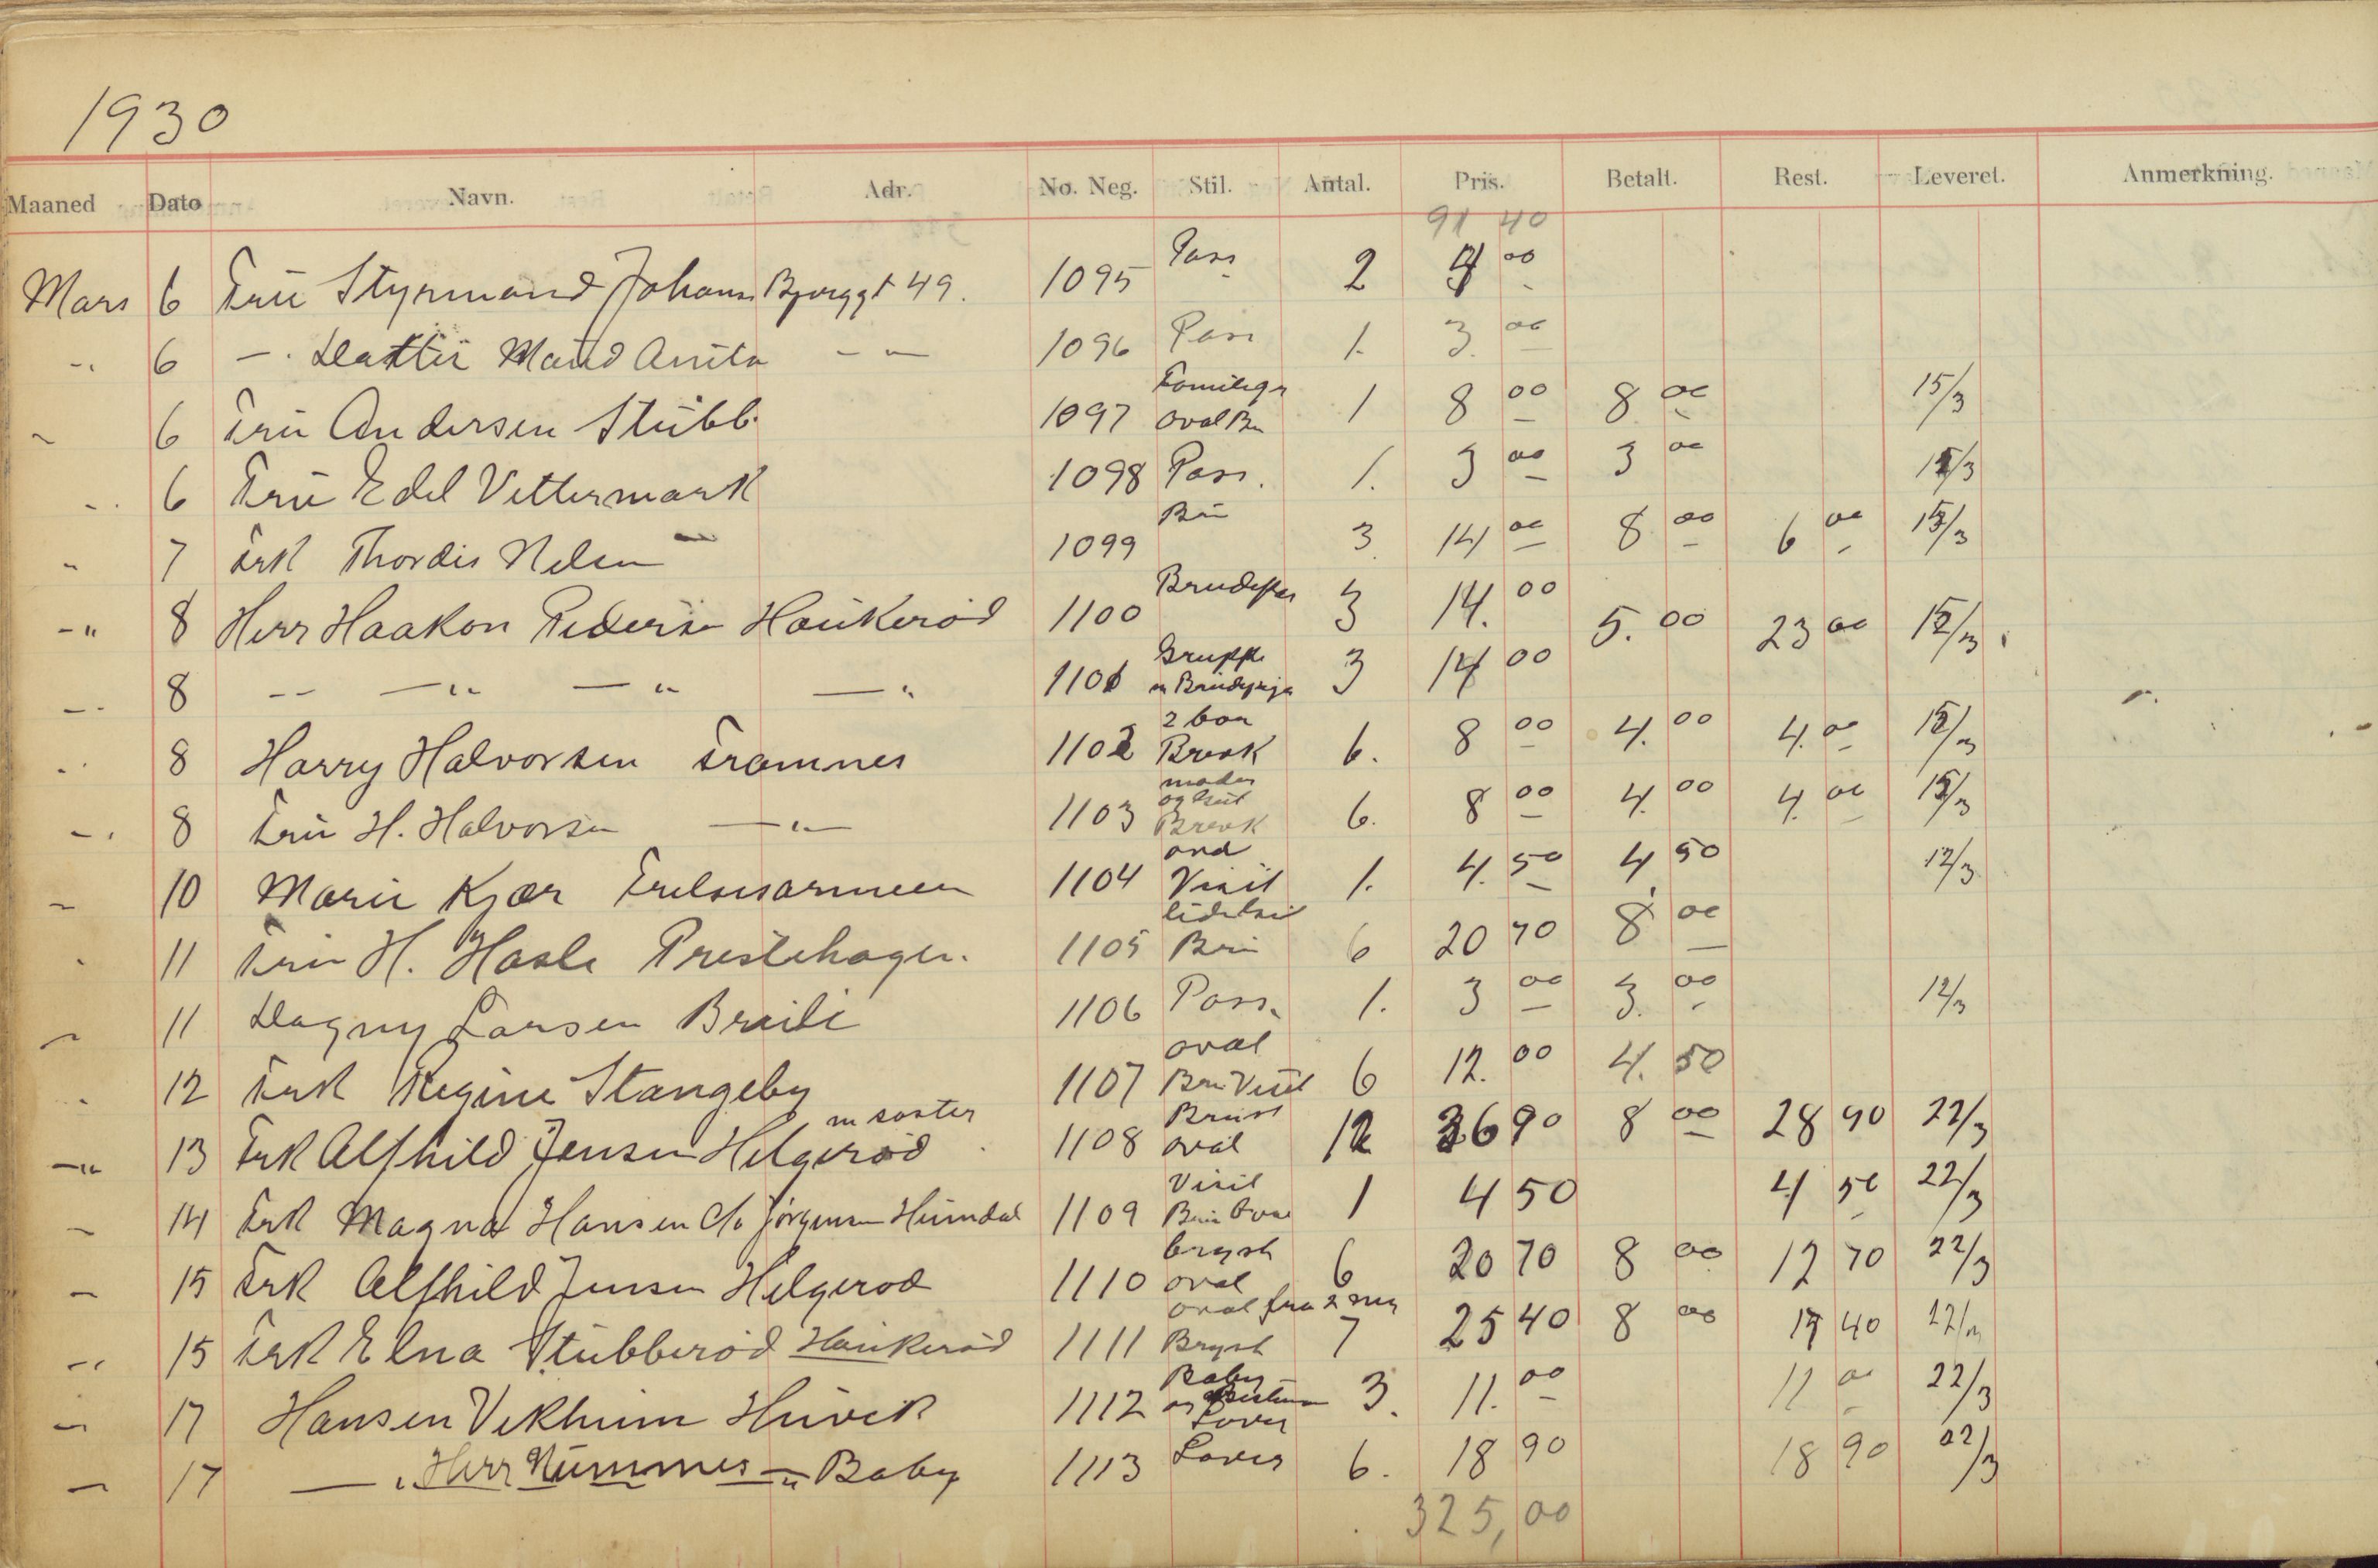 1930
Maaned Dato Navn. Adr. No. Neg. Stil. Antal. Pris. Betalt. Rest. Leveret. Anmerkning.
91 40
Mars 6 Fru Styrmand Johans Bjerggt 49. 1095 Pass 2 4 00
-„ 6 — Datter Maud Anita - — 1096 Pass 1. 3. 00
„ 6 Fru Andersen Stubb. 1097 Familiegr oval Bu 1 8 00 8 00 15/3
-„ 6 Fru Edel Vettermark 1098 Pass. 1. 3 00 3 00 15/3
„ 7 Frk Thordis Nelsen 1099 3. 14 00 8 00 6 00 15/3
-„ 8 Herr Haakon Pedersen Haukerød 1100 Brudepar 3 14. 00 5. 00 23 00 15/3
-„ 8 -- —„ —„ —„ 1101 Gruppe m Brudepige 3 14 00
-„ 8 Harry Halvorsen Framnes 1102 2 barn Brevk 6. 8 00 4. 00 4. 00 15/3
-„ 8 Fru H. Halvorsen —„— 1103 moder og Brevk 6. 8 00 4. 00 4. 00 15/3
„ 10 Marie Kjær Frelsesarmeen 1104 Visit 1. 4. 50 4 50 12/3
„ 11 Fru H. Hasle Prestehagen. 1105 6 20 70 8 00
„ 11 Dagny Larsen 1106 Pass. 1. 3 00 3. 00 12/3
„ 12 Frk Regine Stangeby 1107 oval Visit 6 12. 00 4. 50
m søster
-„ 13 Frk Alfhild Jensen Helgerød 1108 oval 12 36 90 8 00 28 90 22/3
„ 14 Frk Magna Hansen c/o Jørgensen Heimdal 1109 Visit 1 4 50 4 50 22/3
„ 15 Frk Alfhild Jensen Helgerød 1110 bryst oval 6 20 70 8 00 12 70 22/3
-„ 15 Frk Elna Stubberød Haukerød 1111 oval fra 2 neg Bryst 7 25 40 8 00 17 40 22/3
„ 17 Hansen Vekheim Huvik 1112 Baby 3. 11. 00 11 00 22/3
„ 17 —„ Herr Nummes —„ Baby 1113 6. 18 90 18 90 22/3
325,00